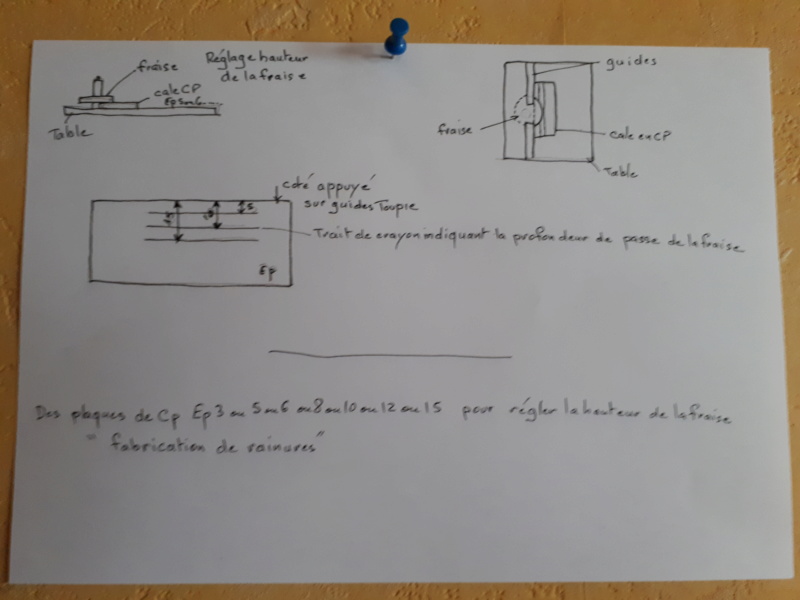 fraise
Réglage hauteur
de la fraise
cale CP
Ep 5 ou 6.....
Table
guides
fraise
cale en CP
Table
coté appuyé
sur guides Toupie
15
10
5
Trait de crayon indiquant la profondeur de passe de la fraise
Ep
Des plaques de Cp Ep 3 ou 5 ou 6 ou 8 ou 10 ou 12 ou 15 pour régler la hauteur de la fraise
" fabrication de rainures"